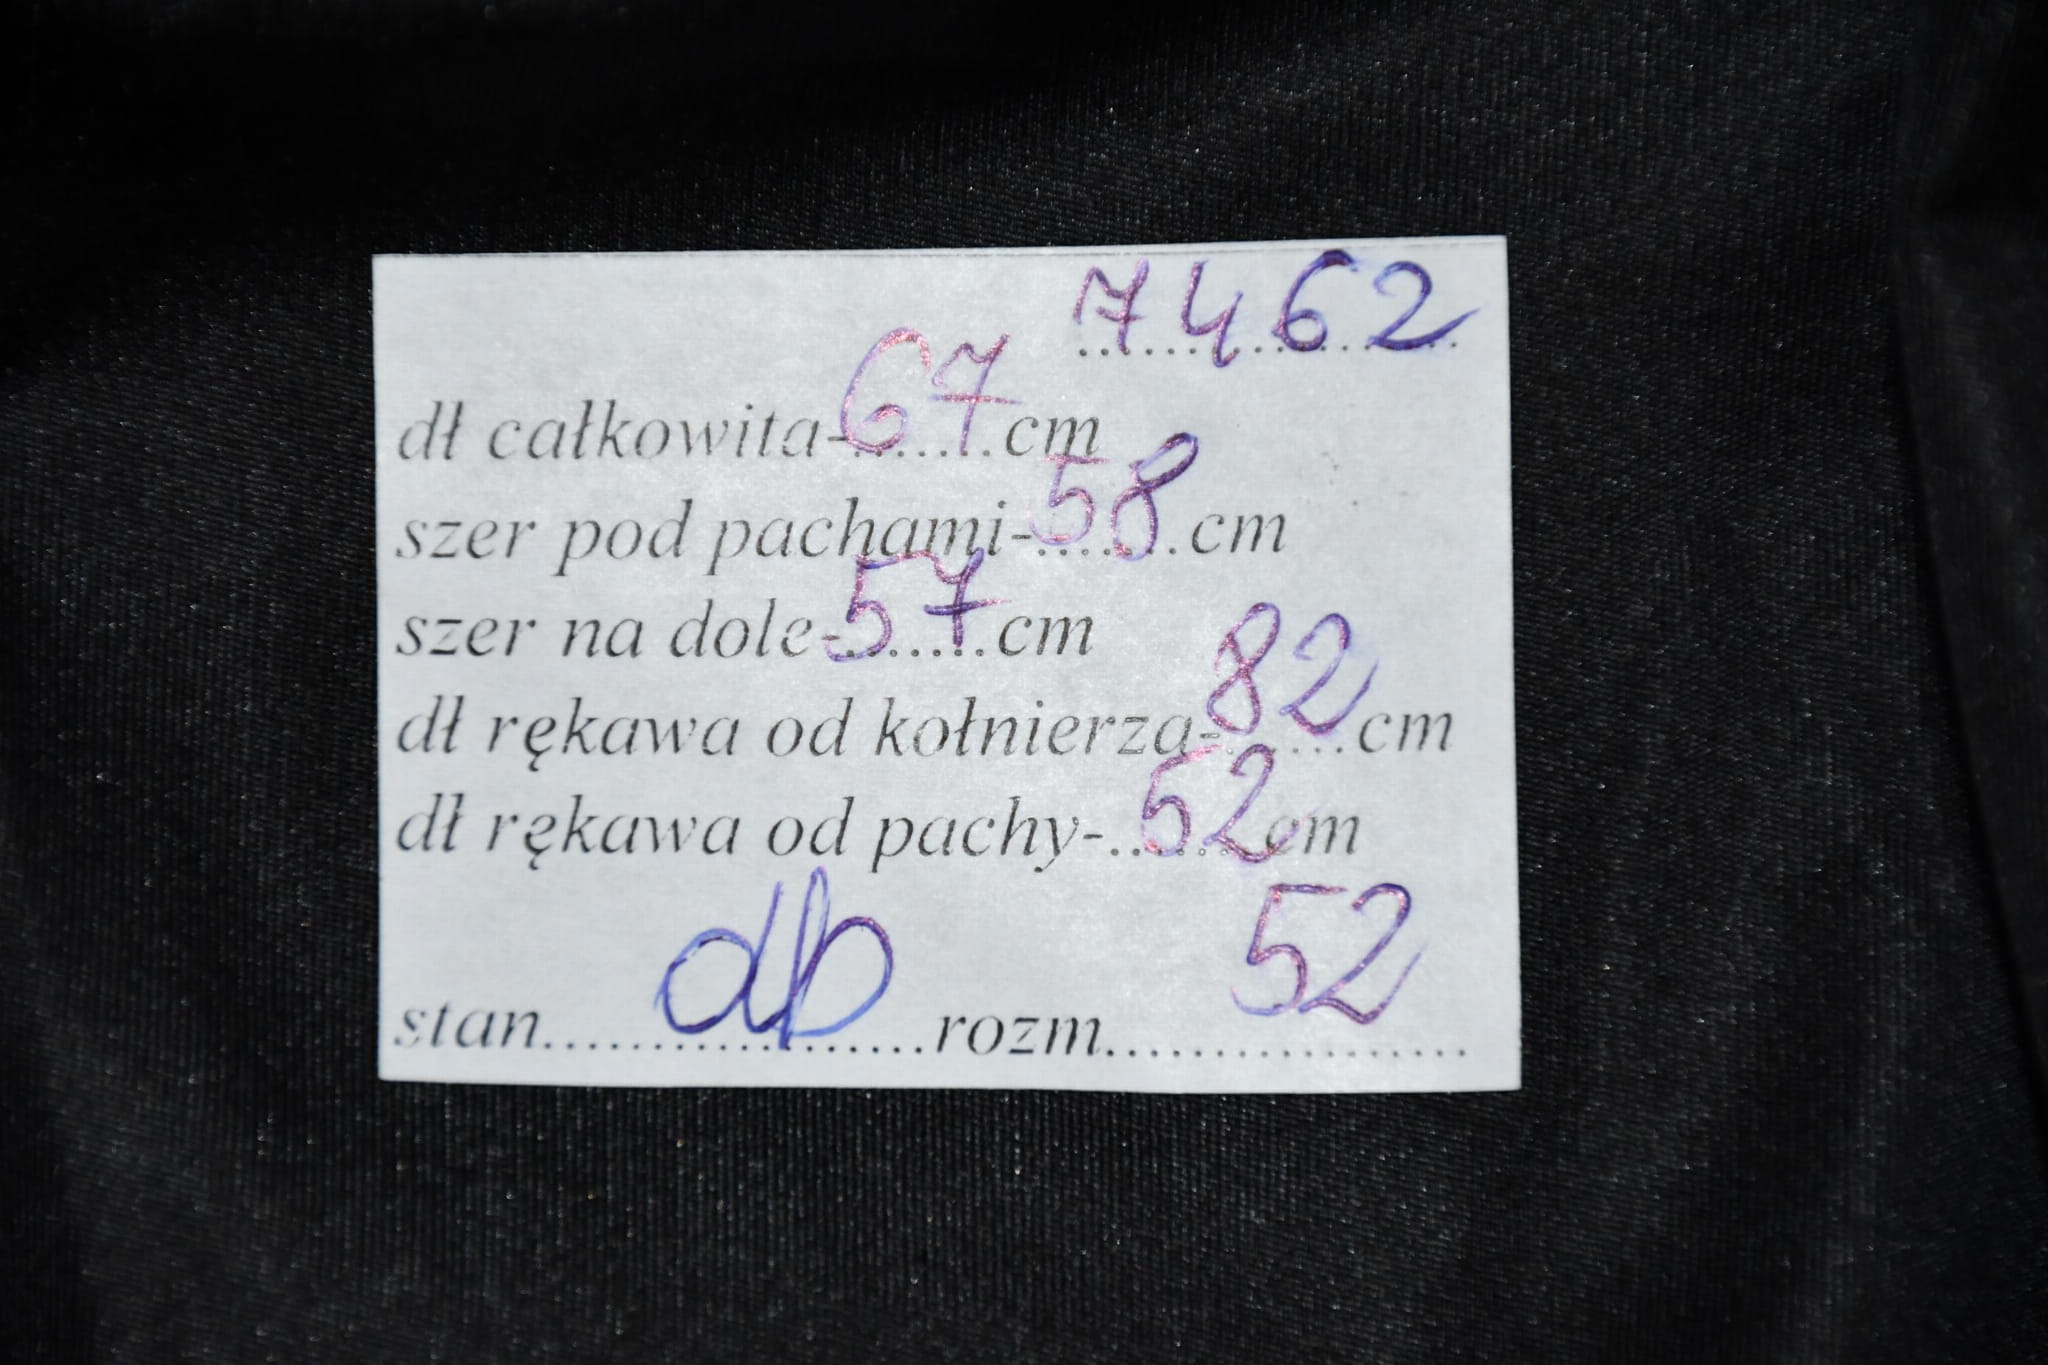 7462
dł całkowita-67cm
szer pod pachami-58cm
szer na dole-57cm
dł rękawa od kołnierza-82cm
dł rękawa od pachy-52cm
stan db rozm 52